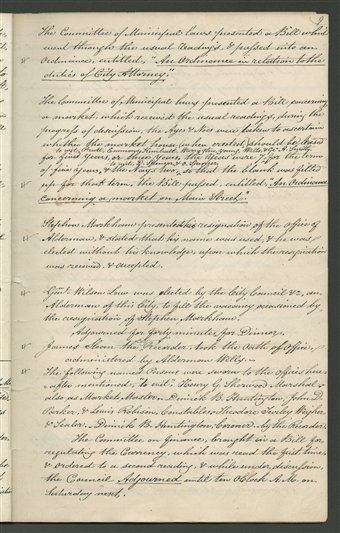 9
The Committee of Municipal laws presented a Bill which
went through the usual readings, & passed into an
Ordinance, entitled, "An Ordinance in relation to the
duties of City Attorney."
The Committee of Municipal laws presented a Bill concerning
a market, which received the usual readings, during the
progress of discussion, the Ayes & Noes were taken to ascertain
whether the market house, when erected should be leased
for five years, or three years, the Yeas were 7 for the term
of five years, & the Nays two, so that the blank was filled
up for that term, the Bill passed, entitled, An Ordinance
concerning a market on Main Street."
Stephen Markham presented his resignation of the office of
Alderman, & stated that his name was used, & he was
elected without his knowledge, upon which the resignation
was received, & accepted.
Genl. Wilson Law was elected by the City Council &c, an
Alderman of this City, to fill the vacancy occasioned by
the resignation of Stephen Markham.
Adjourned for forty minutes, for Dinner.
James Sloan the Recorder, took the Oath of Office,
administered by Alderman Wells.
The following named Persons were sworn to the offices here-
after mentioned, "to wit" Henry G. Sherwood Marshal,
also as Market Master. Dimick B. Huntington, John D.
Parker, & Lewis Robison, Constables. Theodore Turley Weigher
& Sealer. Dimick B. Huntington, Coroner. by the Recorder.
The Committee on Finance, brought in a Bill for
regulating the Currency, which was read the first time,
& ordered to a second reading, & while under discussion,
the Council Adjourned until ten OClock A.M. on
Saturday next.